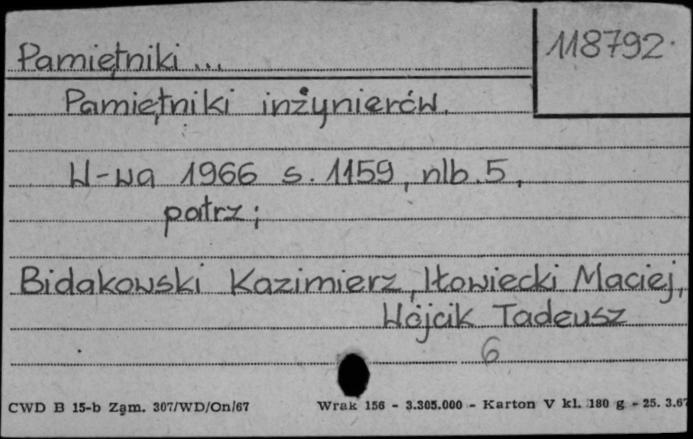 Pamiętniki ... 118792
Pamiętniki inżynierów.
W-wa 1966 s. 1159, nlb. 5,
patrz;
Bidakowski Kazimierz, Iłowiecki Maciej,
Wójcik Tadeusz
6
CWD B 15-b Zam. 307/WD/On/67 Wrak 156 - 3.305.000 - Karton V kl. 180 g - 25. 3.67